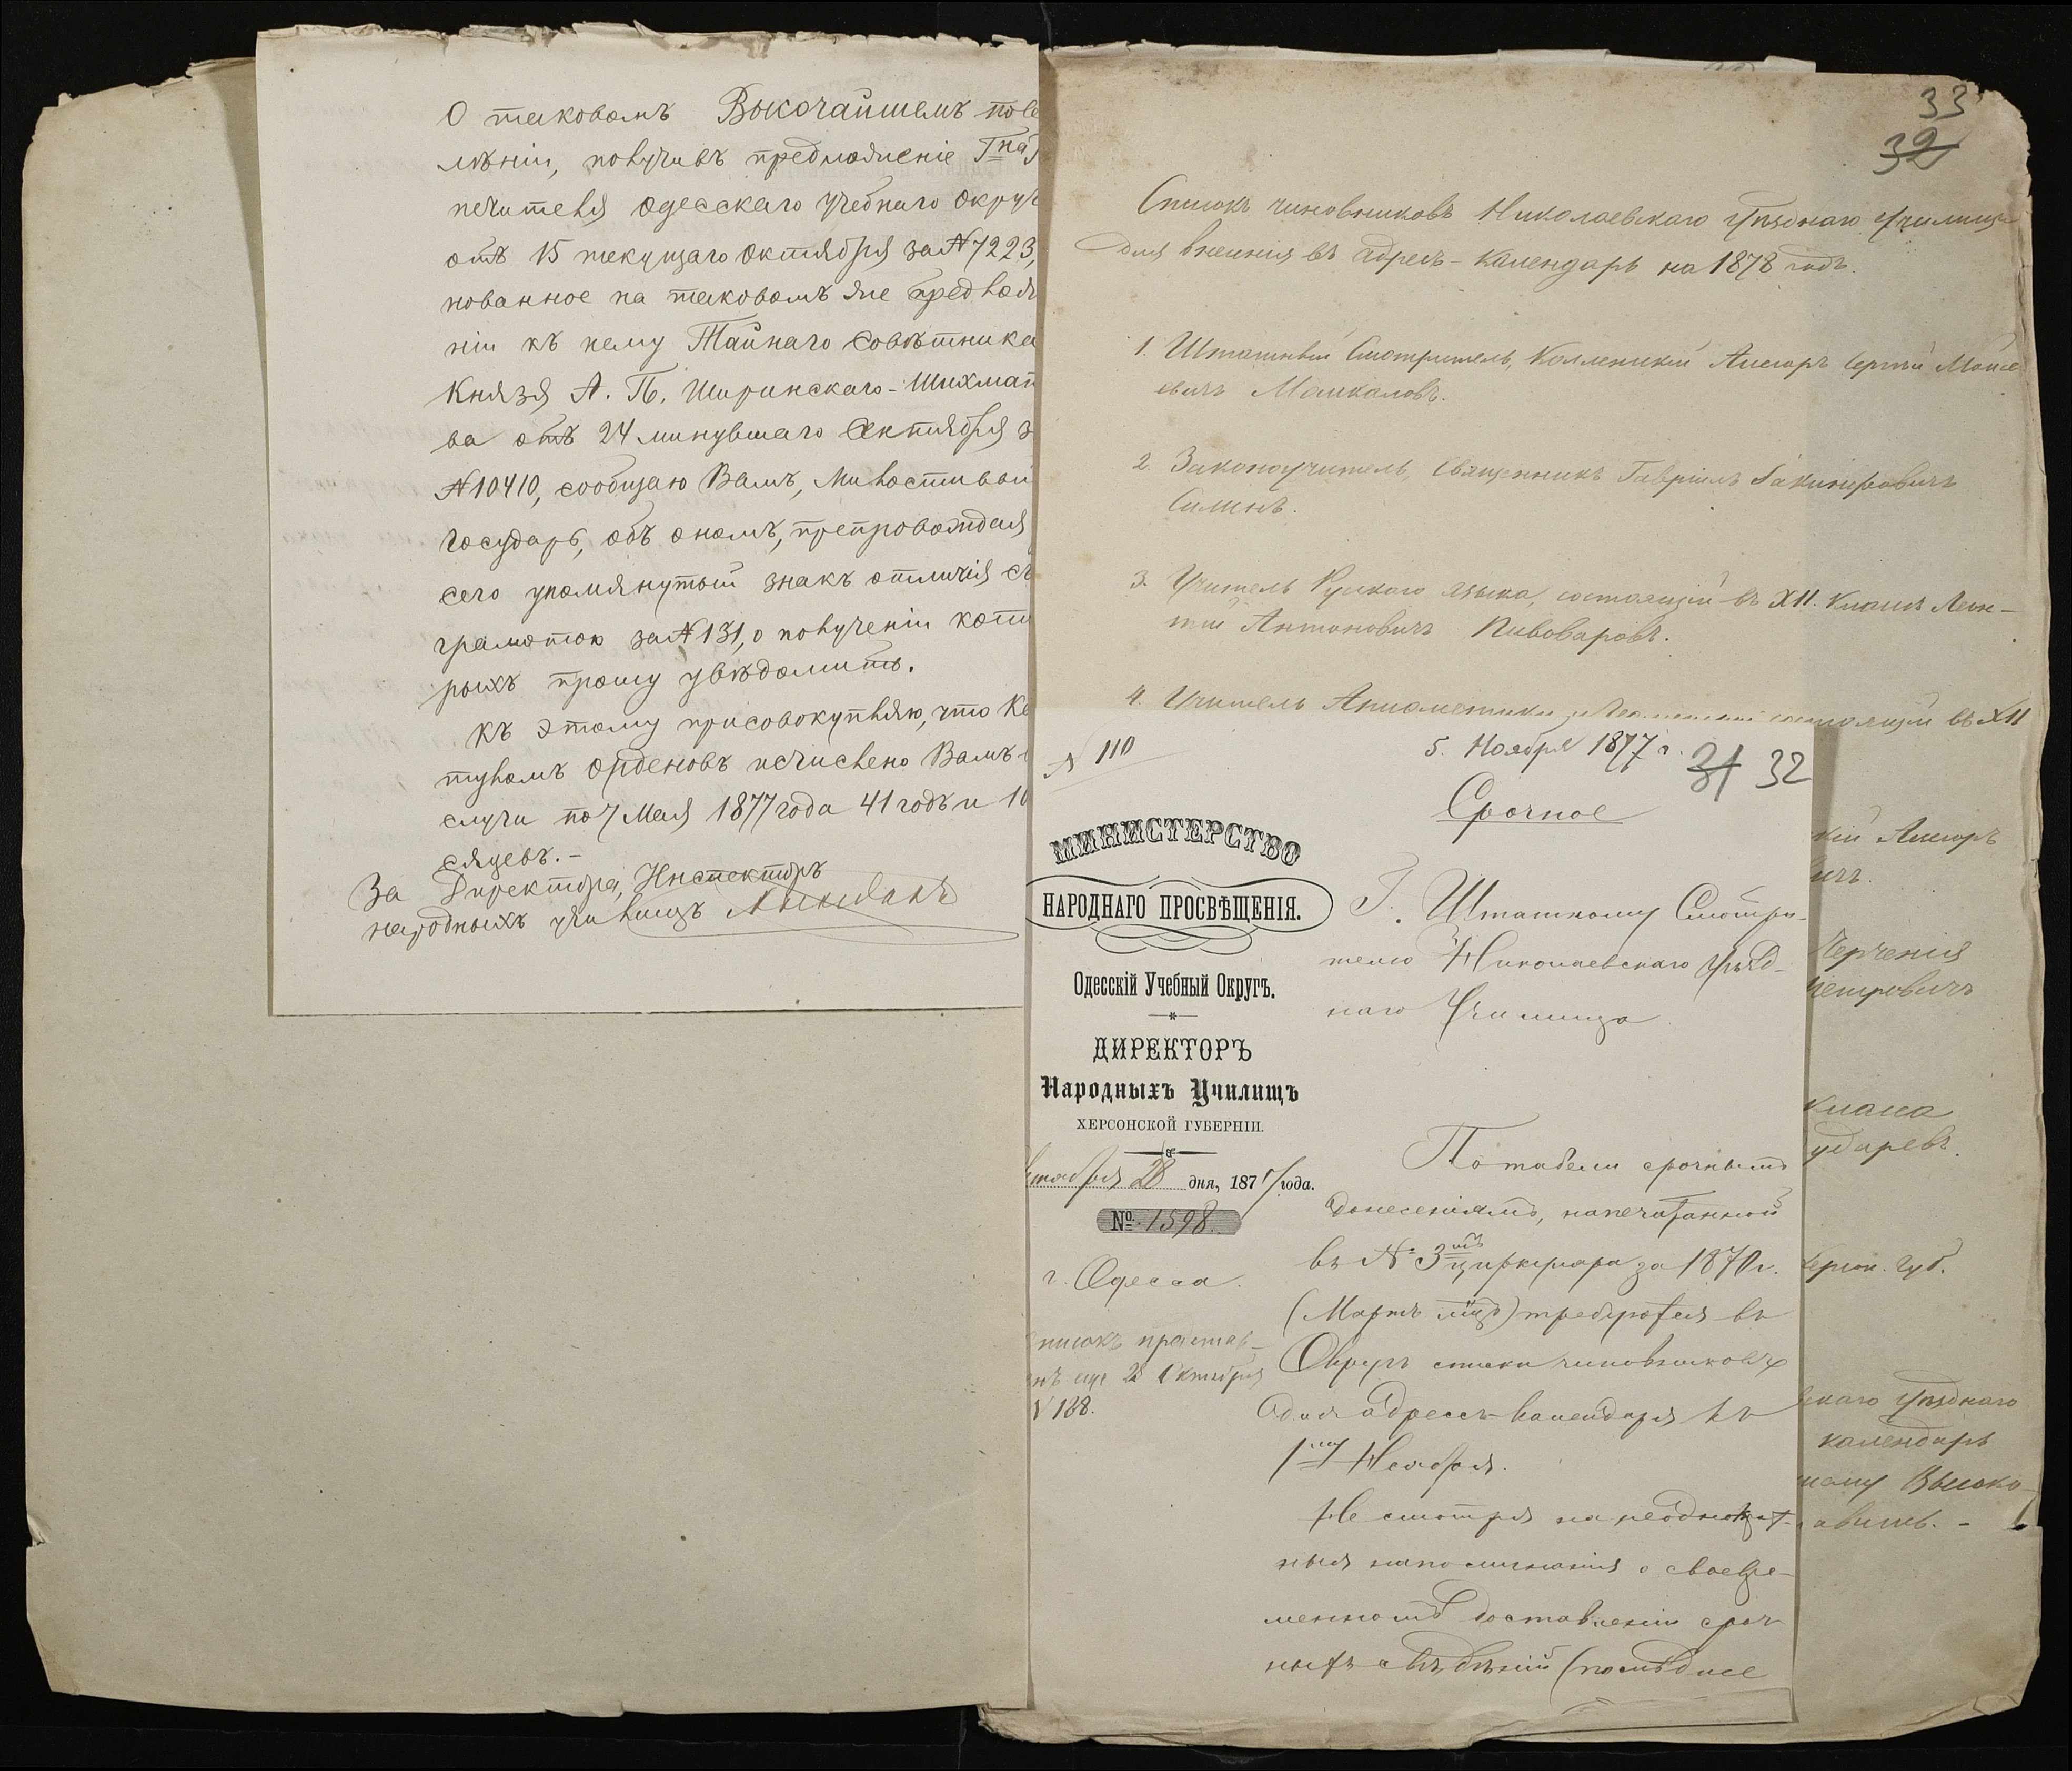 О таковомъ Высочайшемъ пове
лѣніи, получивъ предложеніе Гна
печителя Одесскаго Учебнаго Округ
отъ 15 текущаго Октября за № 7223,
нованное на таковомъ же предлож
ніи къ нему Тайнаго Совѣтника
Князя А. П. Ширинскаго-Шихмат
ва отъ 24 минувшаго Октября з
№ 10410, сообщаю Вамъ, Милостивый
Государь, объ ономъ, препровождая
сего упомянутый знакъ отличія съ
грамотою за № 131, о полученіи кото
рыхъ прошу увѣдомить.
Къ этому присовокупляю, что Ка
туломъ Орденовъ исчислено Вамъ
слуги по 7 Мая 1877 года 41 годъ и 10
сяцевъ.-
За Директора, Инспекторъ
народныхъ училищъ
33
32
Списокъ чиновниковъ Николаевскаго Уѣзднаго Училища
для внесенія въ адресъ-календарь на 1878 годъ.
1. Штатный Смотритель, Коллежскій Ассесоръ Сергѣй Моисе
евичъ Машкаловъ.
2. Законоучитель, Священникъ Гавріилъ
Силинъ.
3. Учитель Русскаго языка, состоящій въ XII. Классѣ Леон-
тій Антоновичъ Пивоваровъ.
4. Учитель Ариѳметики и Геометріи состоящій въ XII
кій Ассесоръ
ичъ.
Черченія
Петровичъ
класса
ударевъ.
Херсон. Губ.
скаго Уѣзднаго
календарь
шему Высоко-
авить. -
№ 110
5. Ноября 1877 г.
31 32
Срочное
МИНИСТЕРСТВО
НАРОДНАГО ПРОСВѢЩЕНІЯ.
Одесскій Учебный Округъ.
ДИРЕКТОРЪ
Народныхъ Училищъ
ХЕРСОНСКОЙ ГУБЕРНІИ.
ктября 28 дня, 1877 года.
№ 1598.
г. Одесса.
писокъ представ-
нъ еще 22 Октября
№ 188.
Г. Штатному Смотри-
телю Николаевскаго Уѣзд-
наго Училища
По табели срочнымъ
донесеніямъ, напечатанной
въ № 3мъ циркуляра за 1870 г.
(Мартъ мцъ) требуются въ
Округъ списки чиновниковъ
для адресъ-календаря къ
1му Ноября.
Не смотря на неоднократ-
ныя напоминанія о своевре-
менномъ доставленіи сроч-
ныхъ свѣдѣній (послѣднее